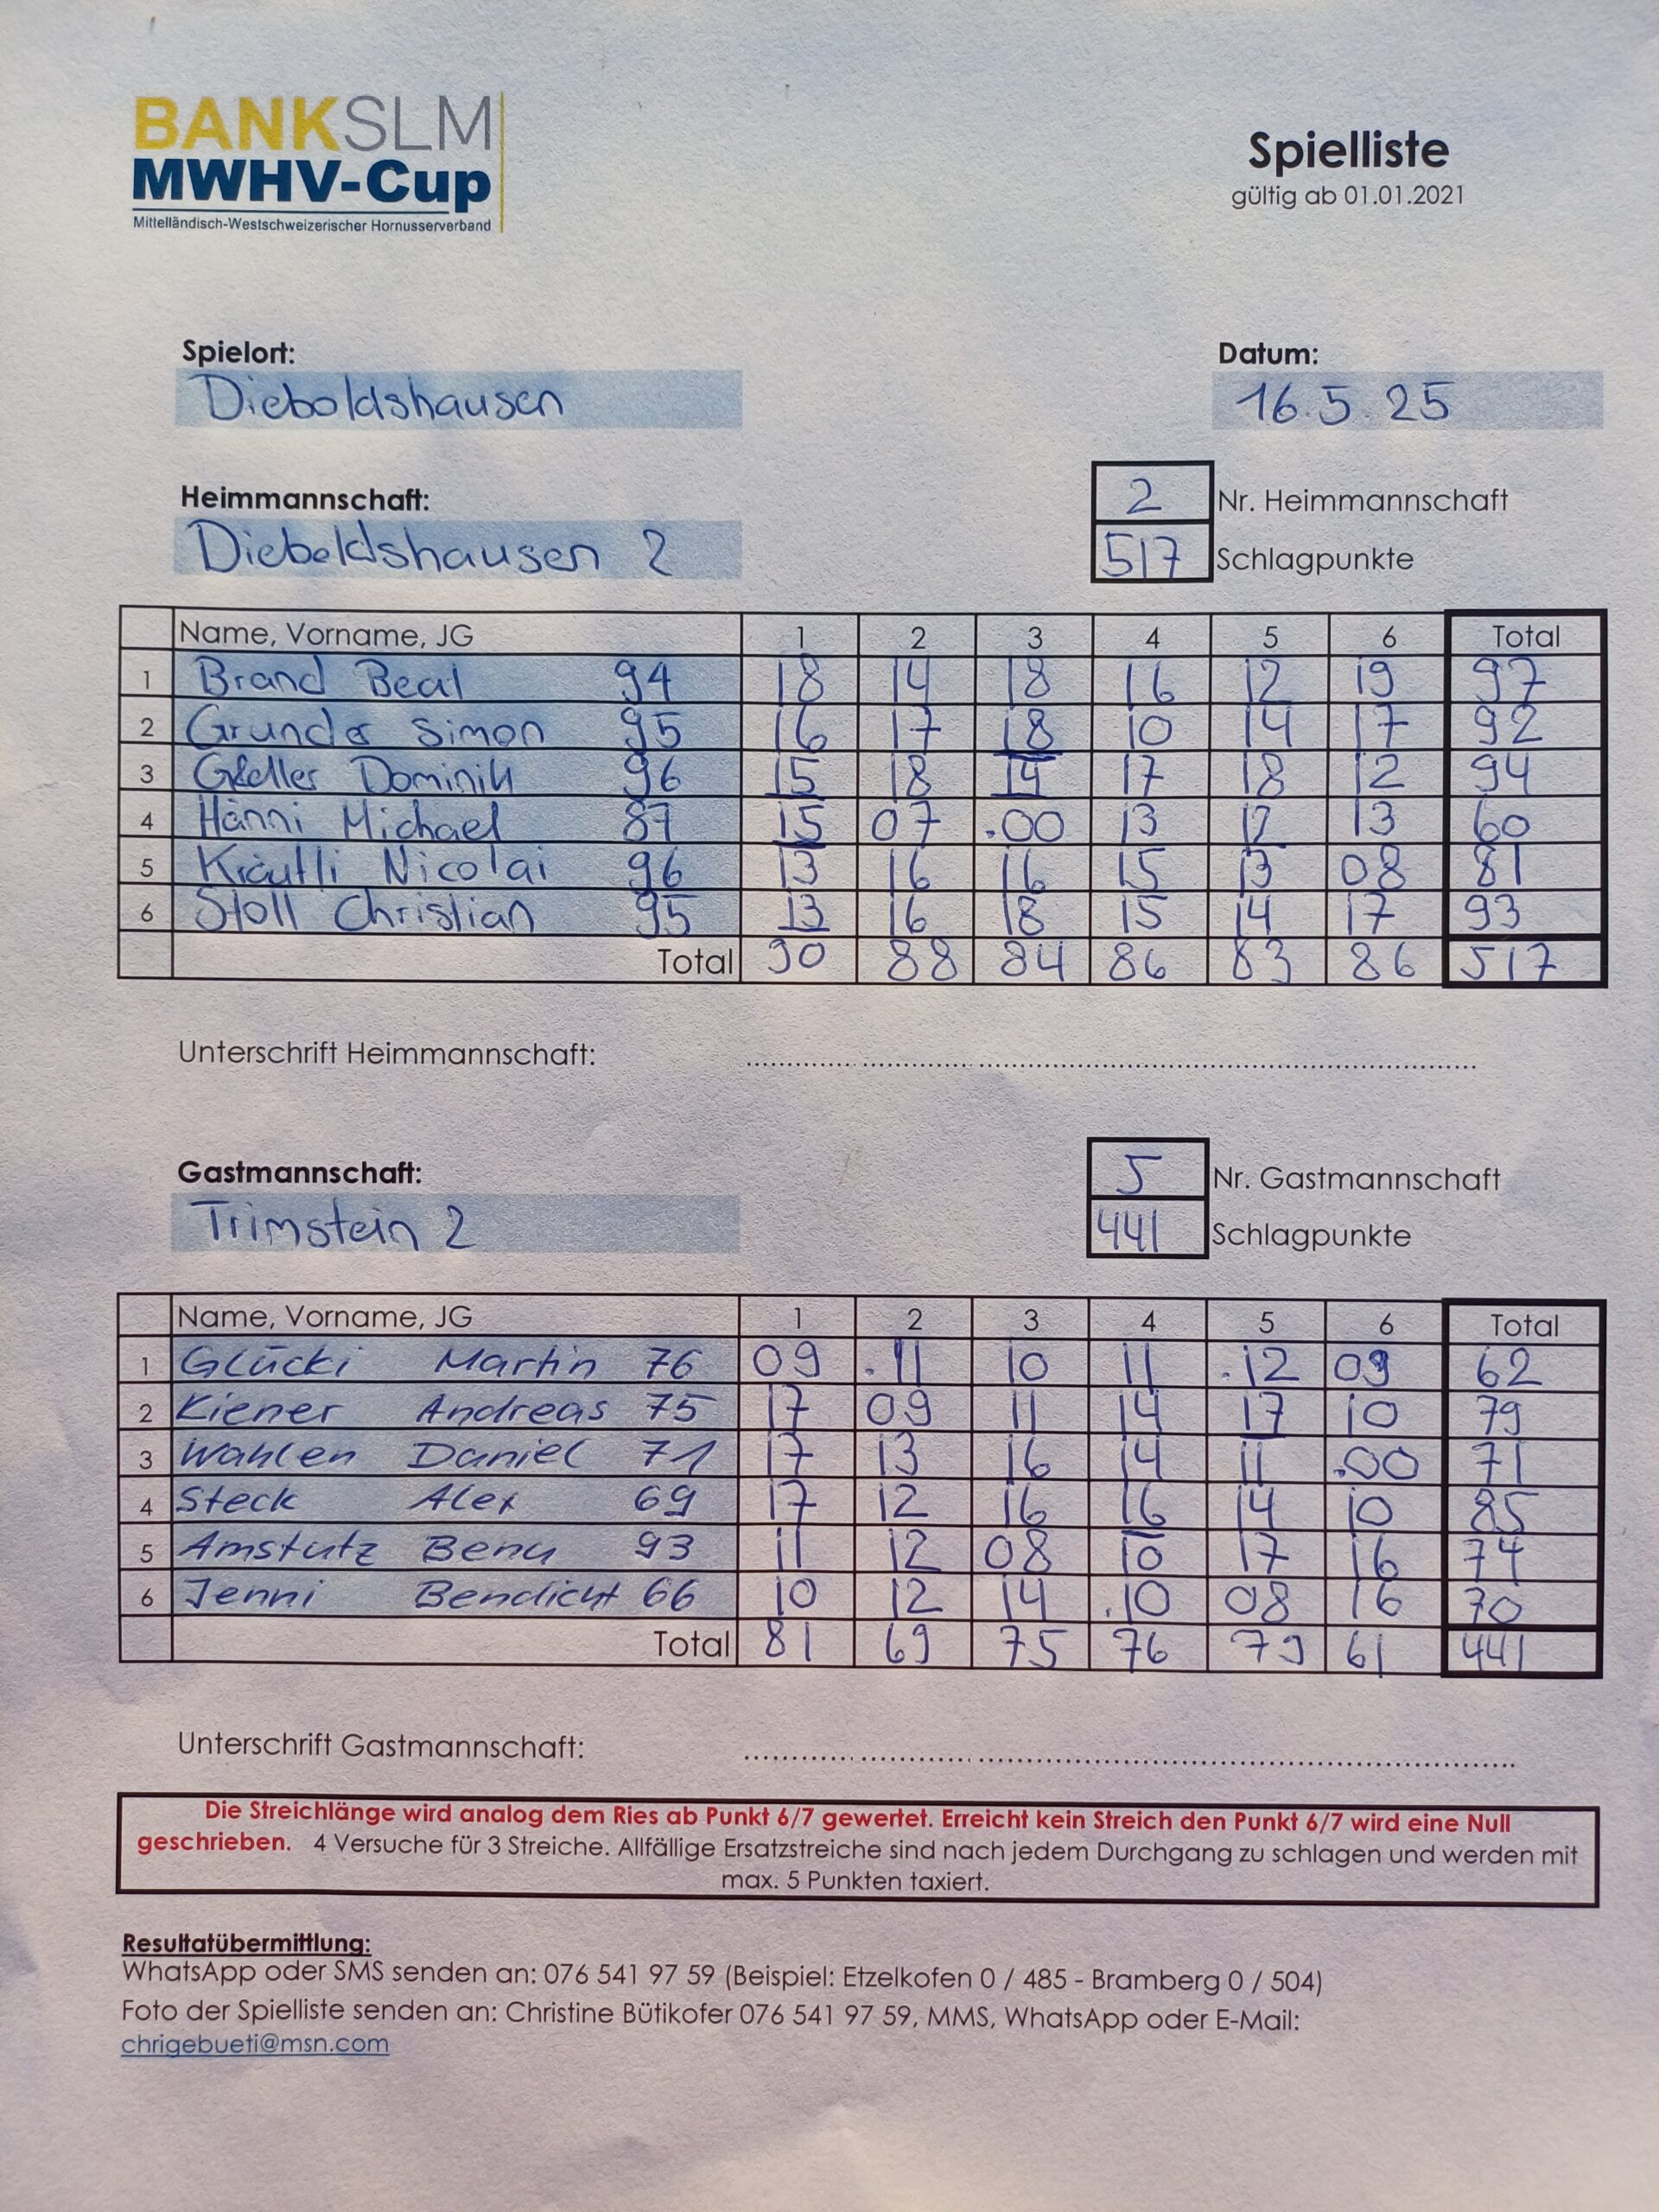 BANKSLM
MWHV-Cup
Mittelländisch-Westschweizerischer Hornusserverband
Spielliste
gültig ab 01.01.2021
Spielort: Datum:
Dieboldshausen 16.5.25
Heimmannschaft: 2 Nr. Heimmannschaft
Dieboldshausen 2 517 Schlagpunkte
Name, Vorname, JG 1 2 3 4 5 6 Total
1 Brand Beat 94 18 14 18 16 12 19 97
2 Grunder Simon 95 16 17 18 10 14 17 92
3 Gfeller Dominik 96 15 18 14 17 18 12 94
4 Hänni Michael 87 15 07 .00 13 12 13 60
5 Kräutli Nicolai 96 13 16 16 15 13 08 81
6 Stoll Christian 95 13 16 18 15 14 17 93
Total 90 88 84 86 83 86 517
Unterschrift Heimmannschaft:
Gastmannschaft: 5 Nr. Gastmannschaft
Trimstein 2 441 Schlagpunkte
Name, Vorname, JG 1 2 3 4 5 6 Total
1 Glücki Martin 76 09 .11 10 11 .12 09 62
2 Kiener Andreas 75 17 09 11 14 17 10 79
3 Wahlen Daniel 71 17 13 16 14 11 .00 71
4 Steck Alex 69 17 12 16 16 14 10 85
5 Amstutz Benu 93 11 12 08 10 17 16 74
6 Jenni Bendicht 66 10 12 14 .10 08 16 70
Total 81 69 75 76 79 61 441
Unterschrift Gastmannschaft:
Die Streichlänge wird analog dem Ries ab Punkt 6/7 gewertet. Erreicht kein Streich den Punkt 6/7 wird eine Null
geschrieben. 4 Versuche für 3 Streiche. Allfällige Ersatzstreiche sind nach jedem Durchgang zu schlagen und werden mit
max. 5 Punkten taxiert.
Resultatübermittlung:
WhatsApp oder SMS senden an: 076 541 97 59 (Beispiel: Etzelkofen 0 / 485 - Bramberg 0 / 504)
Foto der Spielliste senden an: Christine Bütikofer 076 541 97 59, MMS, WhatsApp oder E-Mail:
chrigebueti@msn.com